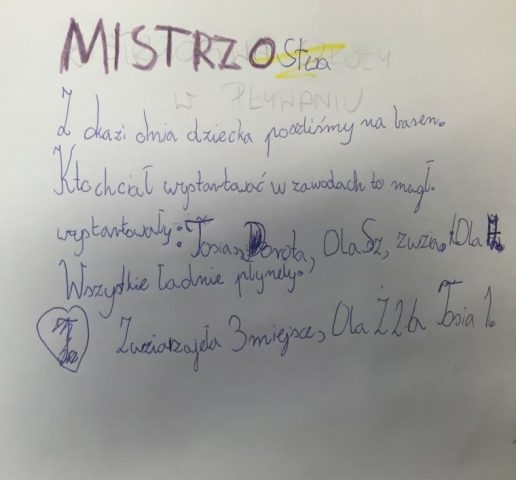 MISTRZOStwa
W PŁYWANIU
Z okazi dnia dziecka poszliśmy na basen.
Kto chciał wystartować w zawodach to mugł.
wystartowały: Tosia, Dorota, Ola Sz, zuzia. i Ola
Wszystkie ładnie płynęły.
Zuzia zajęła 3 miejsce, Ola Ż 2 a Tosia 1.